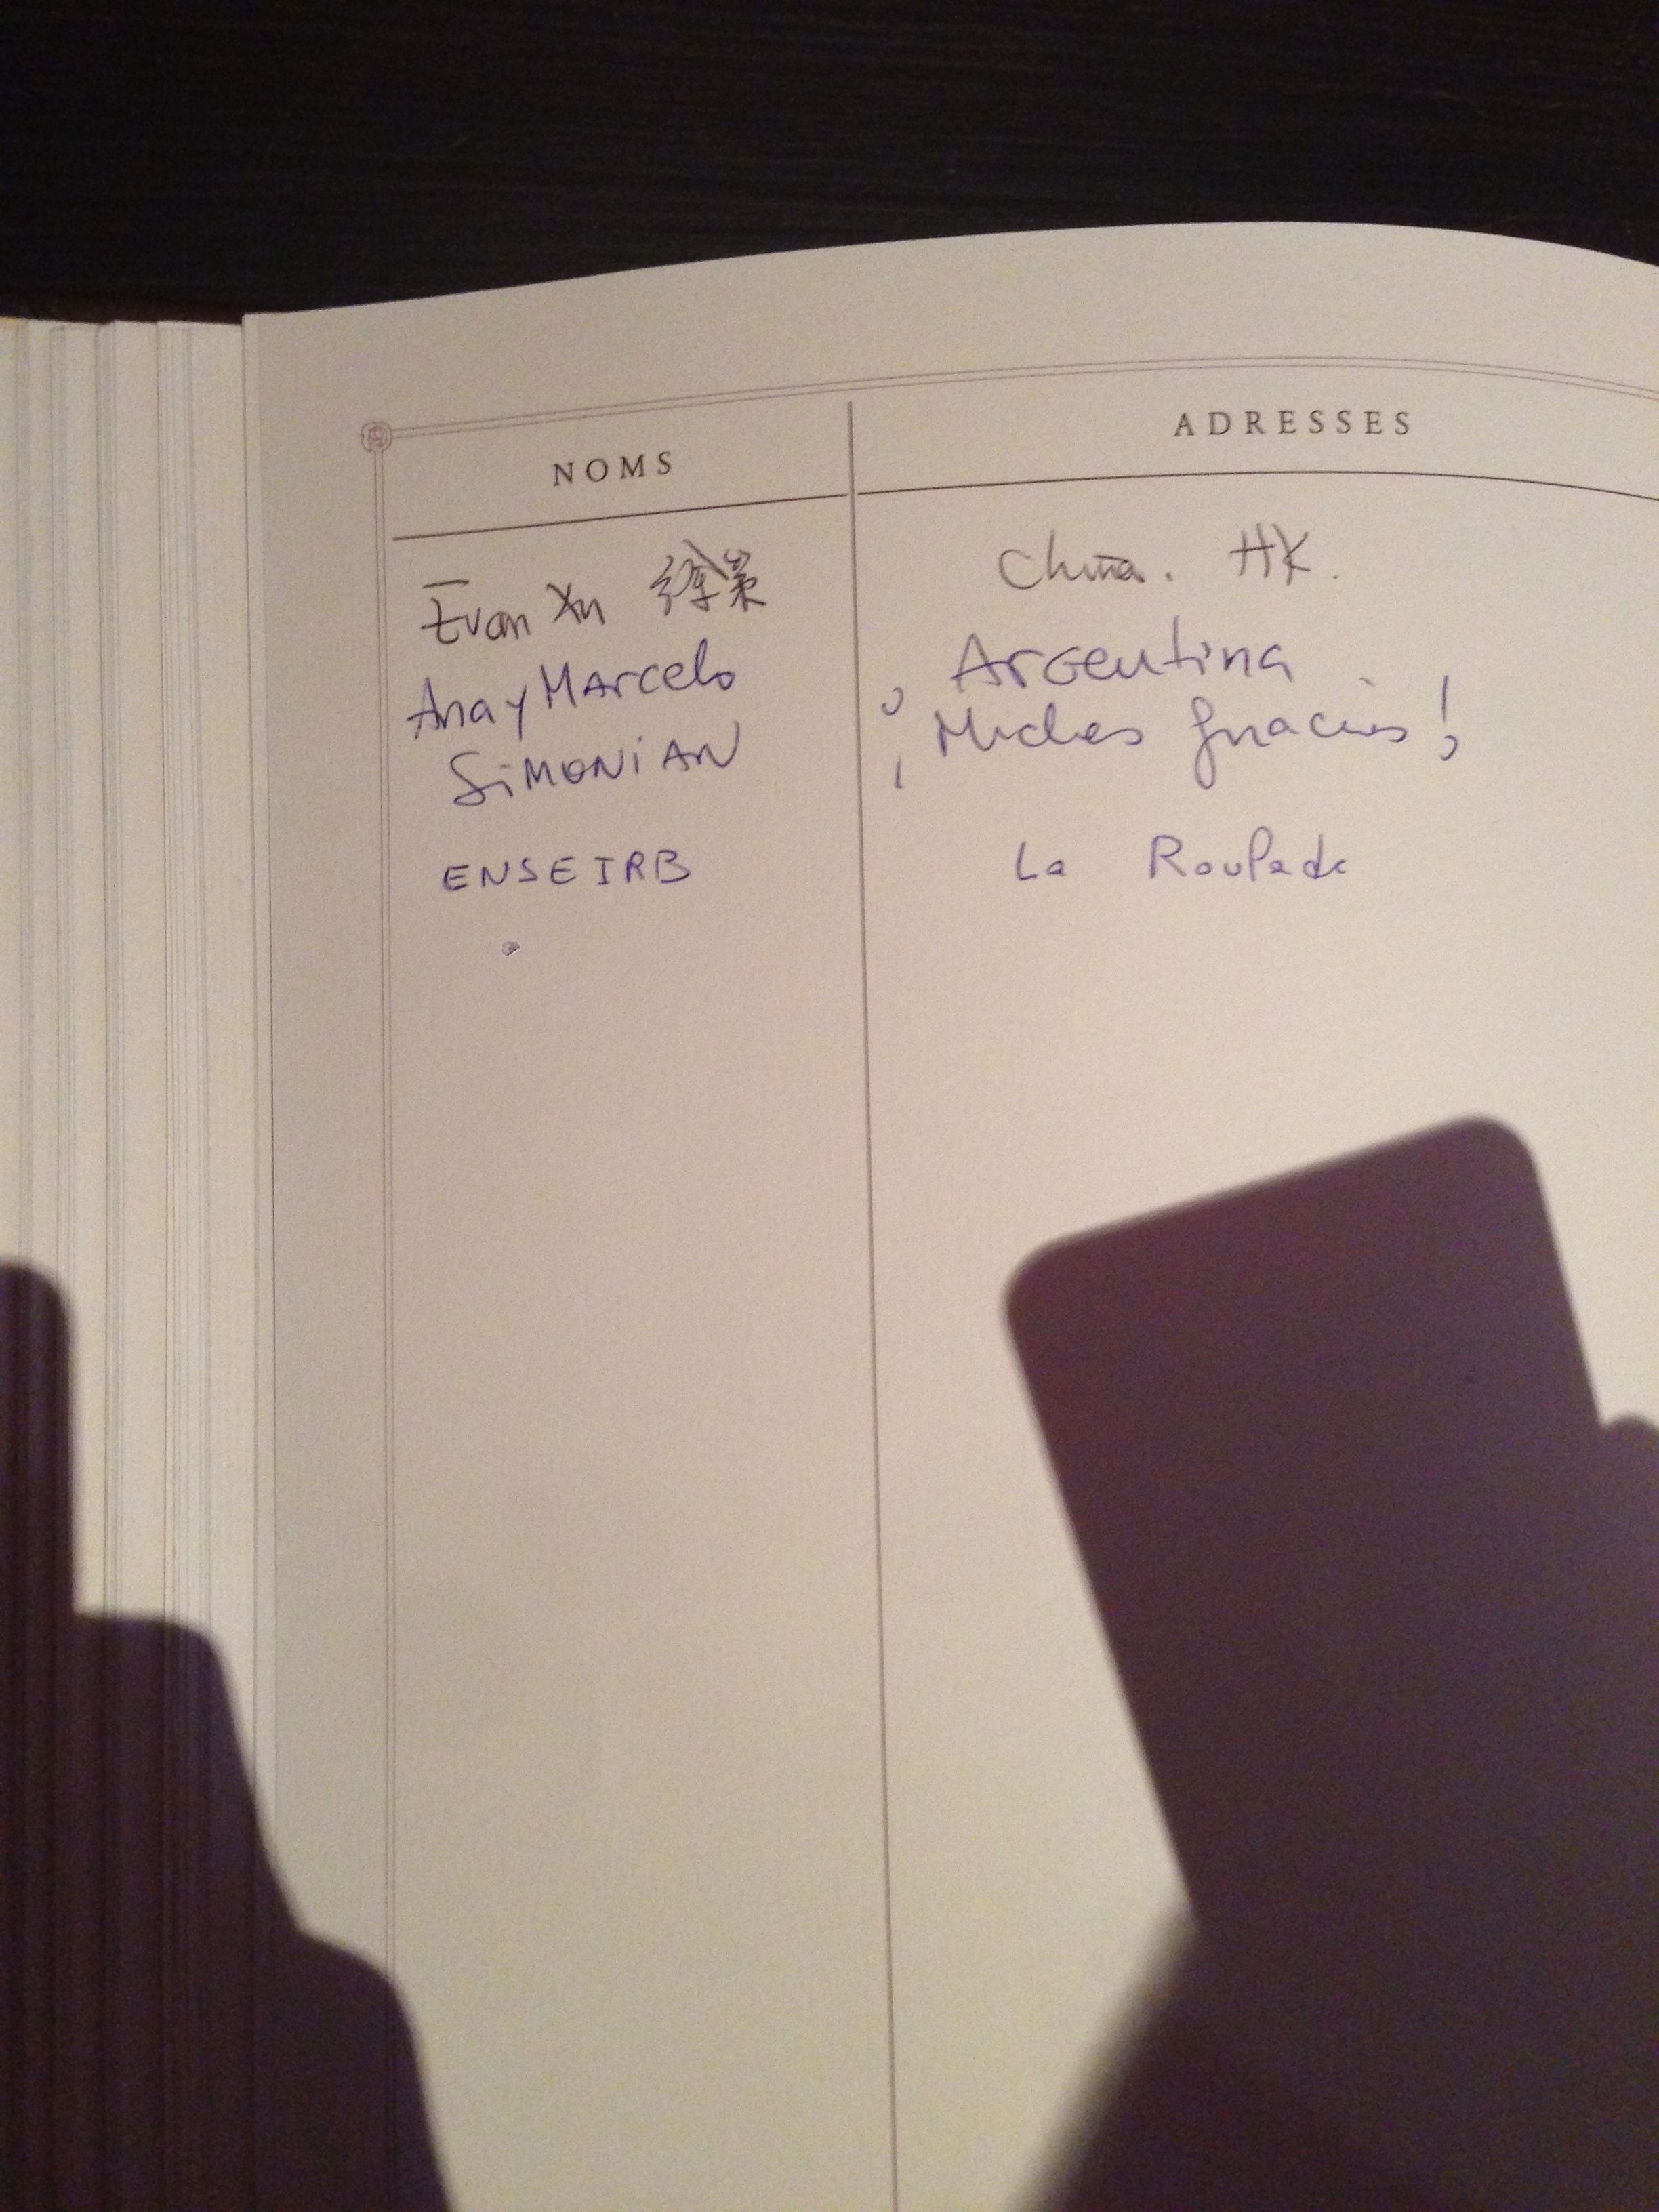 NOMS
ADRESSES
Evan Xu 徐
China. HK.
Ana y Marcelo
Simonian
Argentina
¡Muchas Gracias!
ENSEIRB
La Roulade